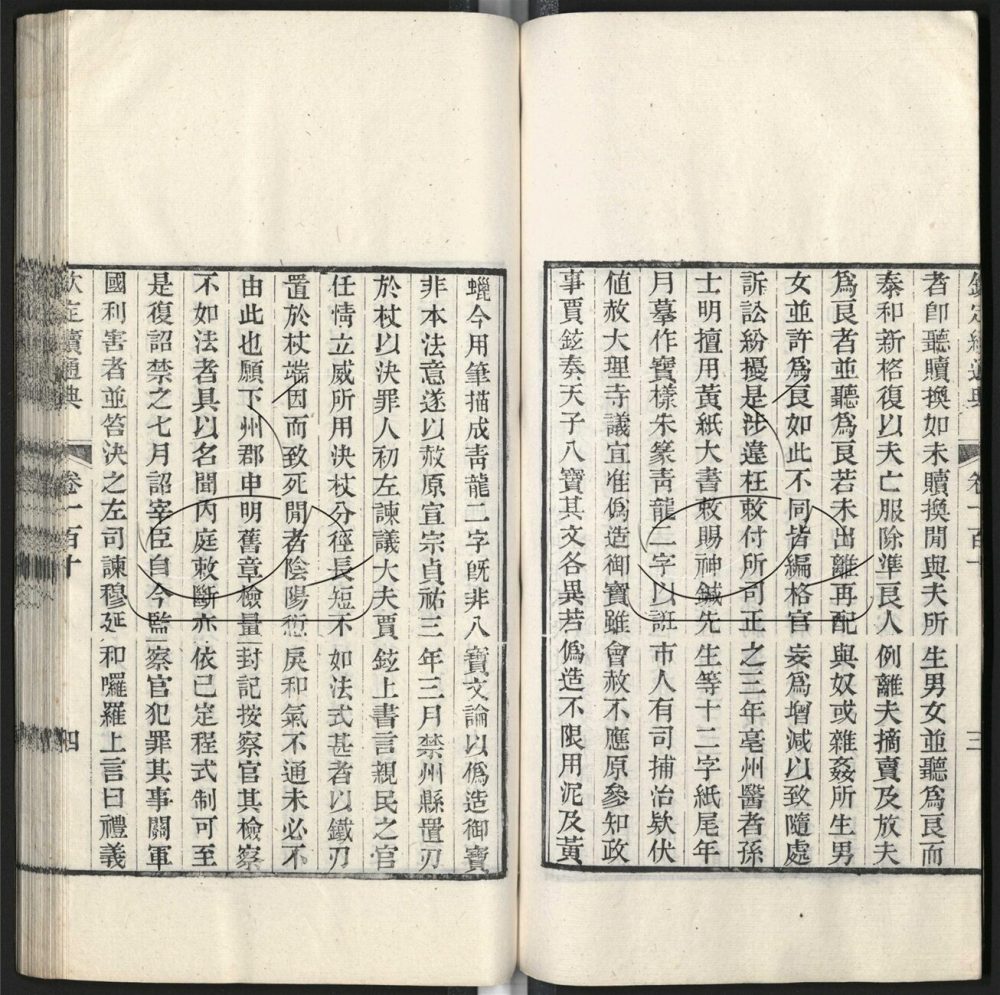 者卽聽贖換如未贖換閒與夫所生男女並聽爲良而
泰和新格復以夫亡服除準良人例離夫摘賣及放夫
爲良者並聽爲良若未出離再配與奴或雜姦所生男
女並許爲良如此不同皆編格官妄爲增減以致隨處
訴訟紛擾是涉違枉敕付所司正之三年亳州醫者孫
士明擅用黃紙大書敕賜神鍼先生等十二字紙尾年
月摹作寶樣朱篆靑龍二字以誑市人有司捕治欵伏
値赦大理寺議宜准僞造御寶雖會赦不應原參知政
事賈鉉奏天子八寶其文各異若僞造不限用泥及黃
蠟今用筆描成靑龍二字旣非八寶文論以僞造御寶
非本法意遂以赦原宣宗貞祐三年三月禁州縣置刃
於杖以決罪人初左諫議大夫賈鉉上書言親民之官
任情立威所用決杖分徑長短不如法式甚者以鐵刃
置於杖端因而致死閒者陰陽愆戾和氣不通未必不
由此也願下州郡申明舊章檢量封記按察官其檢察
不如法者具以名聞內庭敕斷亦依已定程式制可至
是復詔禁之七月詔宰臣自今監察官犯罪其事關軍
國利害者並笞決之左司諫穆延和囉羅上言曰禮義
欽定續通典 卷一百十 四